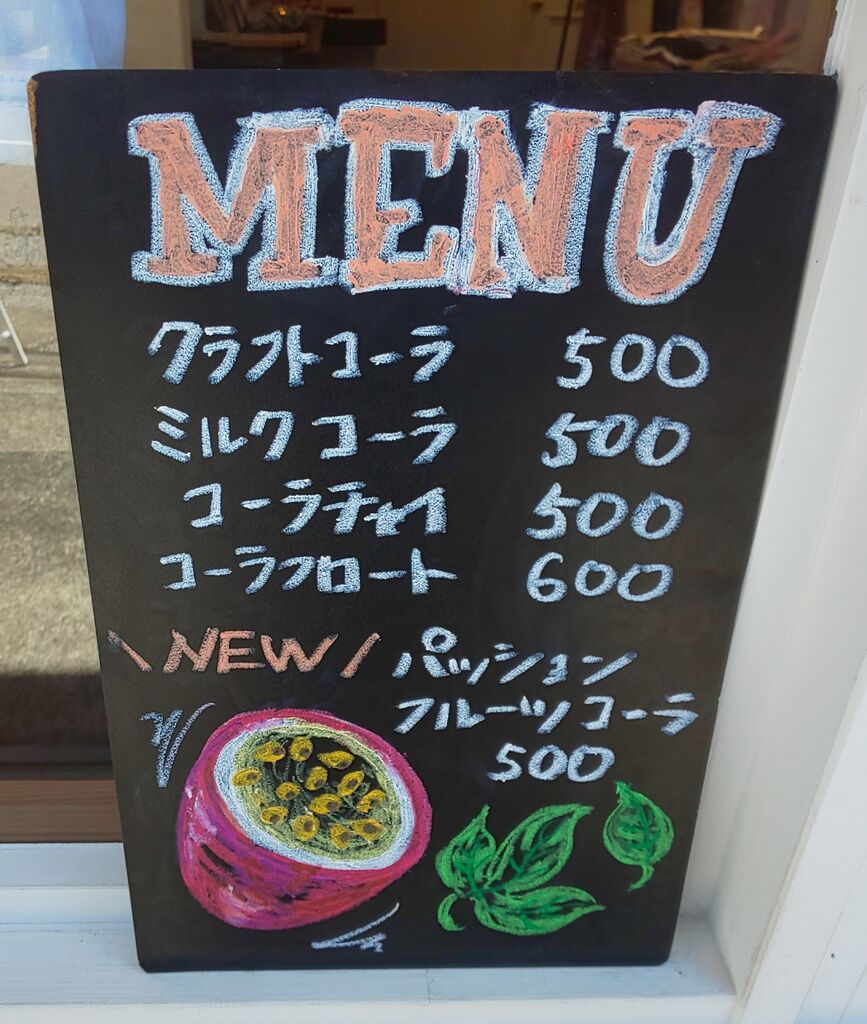 MENU
クラフトコーラ 500
ミルクコーラ 500
コーラチャイ 500
コーラフロート 600
\ NEW / パッション
フルーツコーラ
500